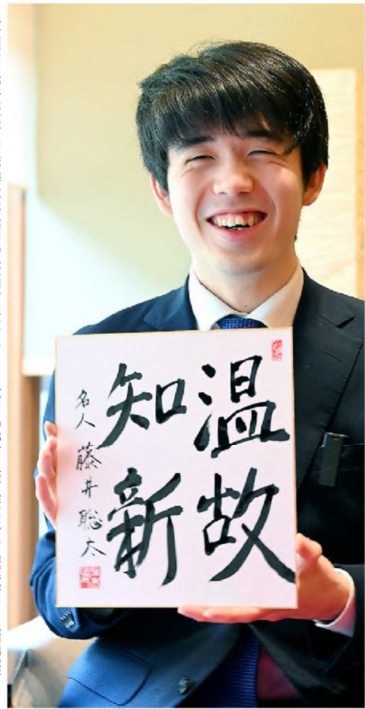 温故
知新
名人 藤井聡太